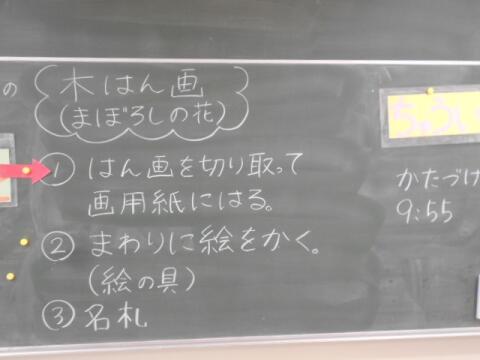 の
木はん画
(まぼろしの花)
① はん画を切り取って
画用紙にはる。
② まわりに絵をかく。
(絵の具)
③ 名札
かたづけ
9:55